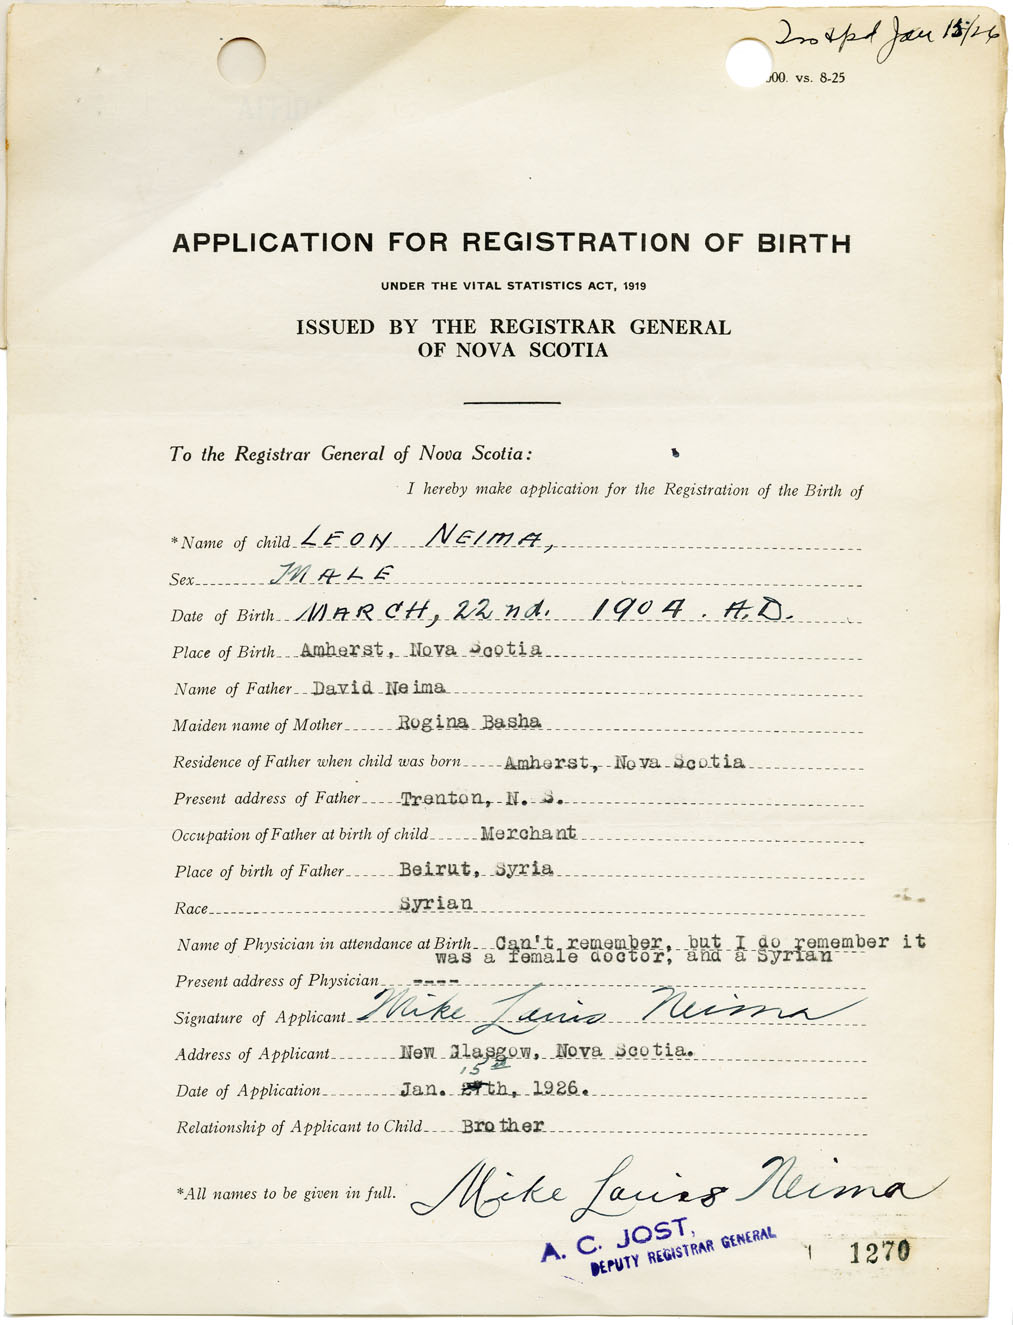 Jan 15/26
00. vs. 8-25
APPLICATION FOR REGISTRATION OF BIRTH
UNDER THE VITAL STATISTICS ACT, 1919
ISSUED BY THE REGISTRAR GENERAL
OF NOVA SCOTIA
To the Registrar General of Nova Scotia:
I hereby make application for the Registration of the Birth of
*Name of child LEON NEIMA,
Sex MALE
Date of Birth MARCH, 22nd. 1904. A.D.
Place of Birth Amherst, Nova Scotia
Name of Father David Neima
Maiden name of Mother Rogina Basha
Residence of Father when child was born Amherst, Nova Scotia
Present address of Father Trenton, N. S.
Occupation of Father at birth of child Merchant
Place of birth of Father Beirut, Syria
Race Syrian
Name of Physician in attendance at Birth Can't remember, but I do remember it
was a female doctor, and a Syrian
Present address of Physician ----
Signature of Applicant Mike Louis Neima
Address of Applicant New Glasgow, Nova Scotia.
15th
Date of Application Jan. th, 1926.
Relationship of Applicant to Child Brother
*All names to be given in full. Mike Louis Neima
A. C. JOST,
DEPUTY REGISTRAR GENERAL
1270